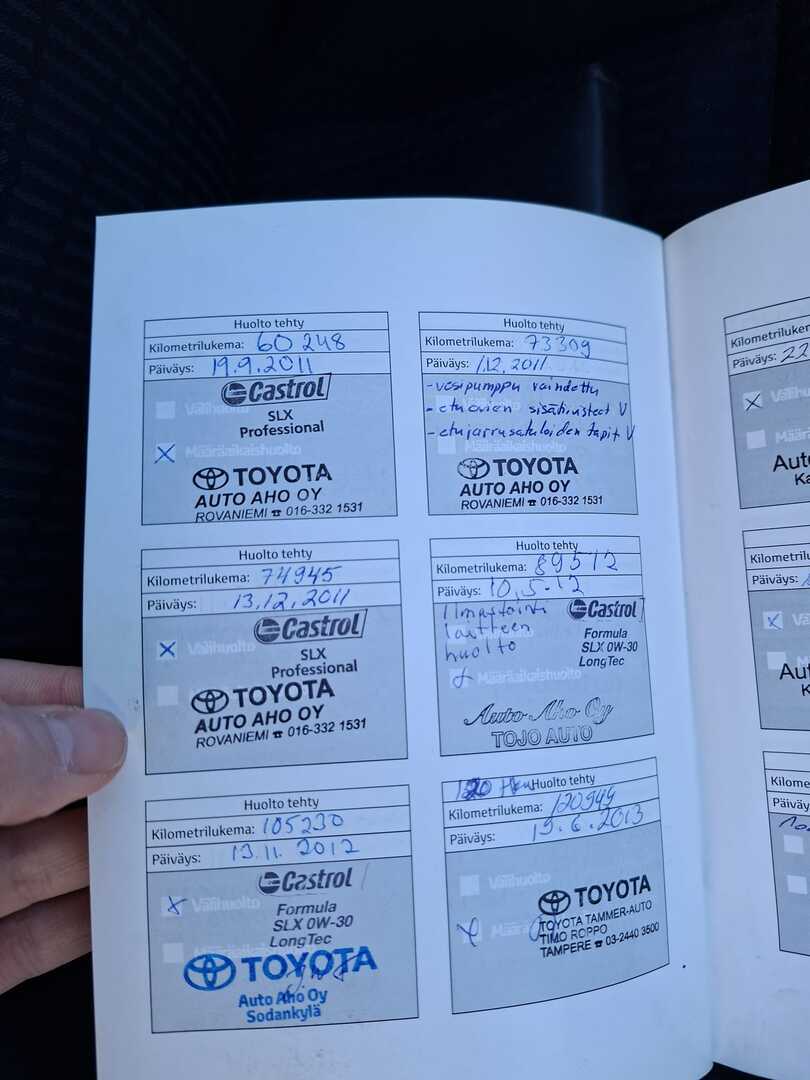 Huolto tehty
Kilometrilukema: 60 248
Päiväys: 19.9.2011
Castrol
Välihuolto
SLX
Professional
Määräaikaishuolto
TOYOTA
AUTO AHO OY
ROVANIEMI ☎ 016-332 1531
Huolto tehty
Kilometrilukema: 73309
Päiväys: 1.12.2011
-vesipumppu vaihdettu
-etuovien sisätiivisteet V
-etujarrusatuloiden tapit V
TOYOTA
AUTO AHO OY
ROVANIEMI ☎ 016-332 1531
Huolto tehty
Kilometrilukema: 74945
Päiväys: 13.12.2011
Castrol
Välihuolto
SLX
Professional
TOYOTA
AUTO AHO OY
ROVANIEMI ☎ 016-332 1531
Huolto tehty
Kilometrilukema: 89512
Päiväys: 10.5.12
Ilmastointi
laitteen
huolto
Castrol
Formula
SLX 0W-30
LongTec
Määräaikaishuolto
Auto Aho Oy
TOJO AUTO
Huolto tehty
Kilometrilukema: 105230
Päiväys: 13.11.2012
Castrol
Välihuolto
Formula
SLX 0W-30
LongTec
TOYOTA
Auto Aho Oy
Sodankylä
120 tkm Huolto tehty
Kilometrilukema: 120949
Päiväys: 19.6.2013
Välihuolto
TOYOTA
TOYOTA TAMMER-AUTO
TIMO ROPPO
TAMPERE ☎ 03-2440 3500
Päiväys: 22
Auto
Ka
Päiväys:
Päiväys